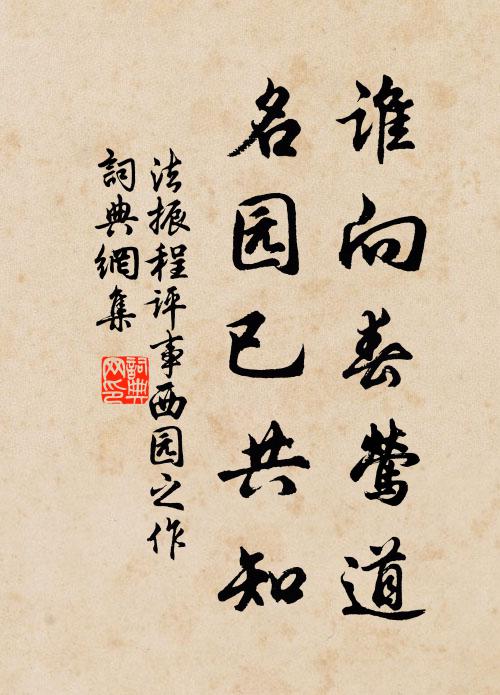 谁向春莺道
名园已共知
法振程评事西园之作
詞典網集
詞典网印